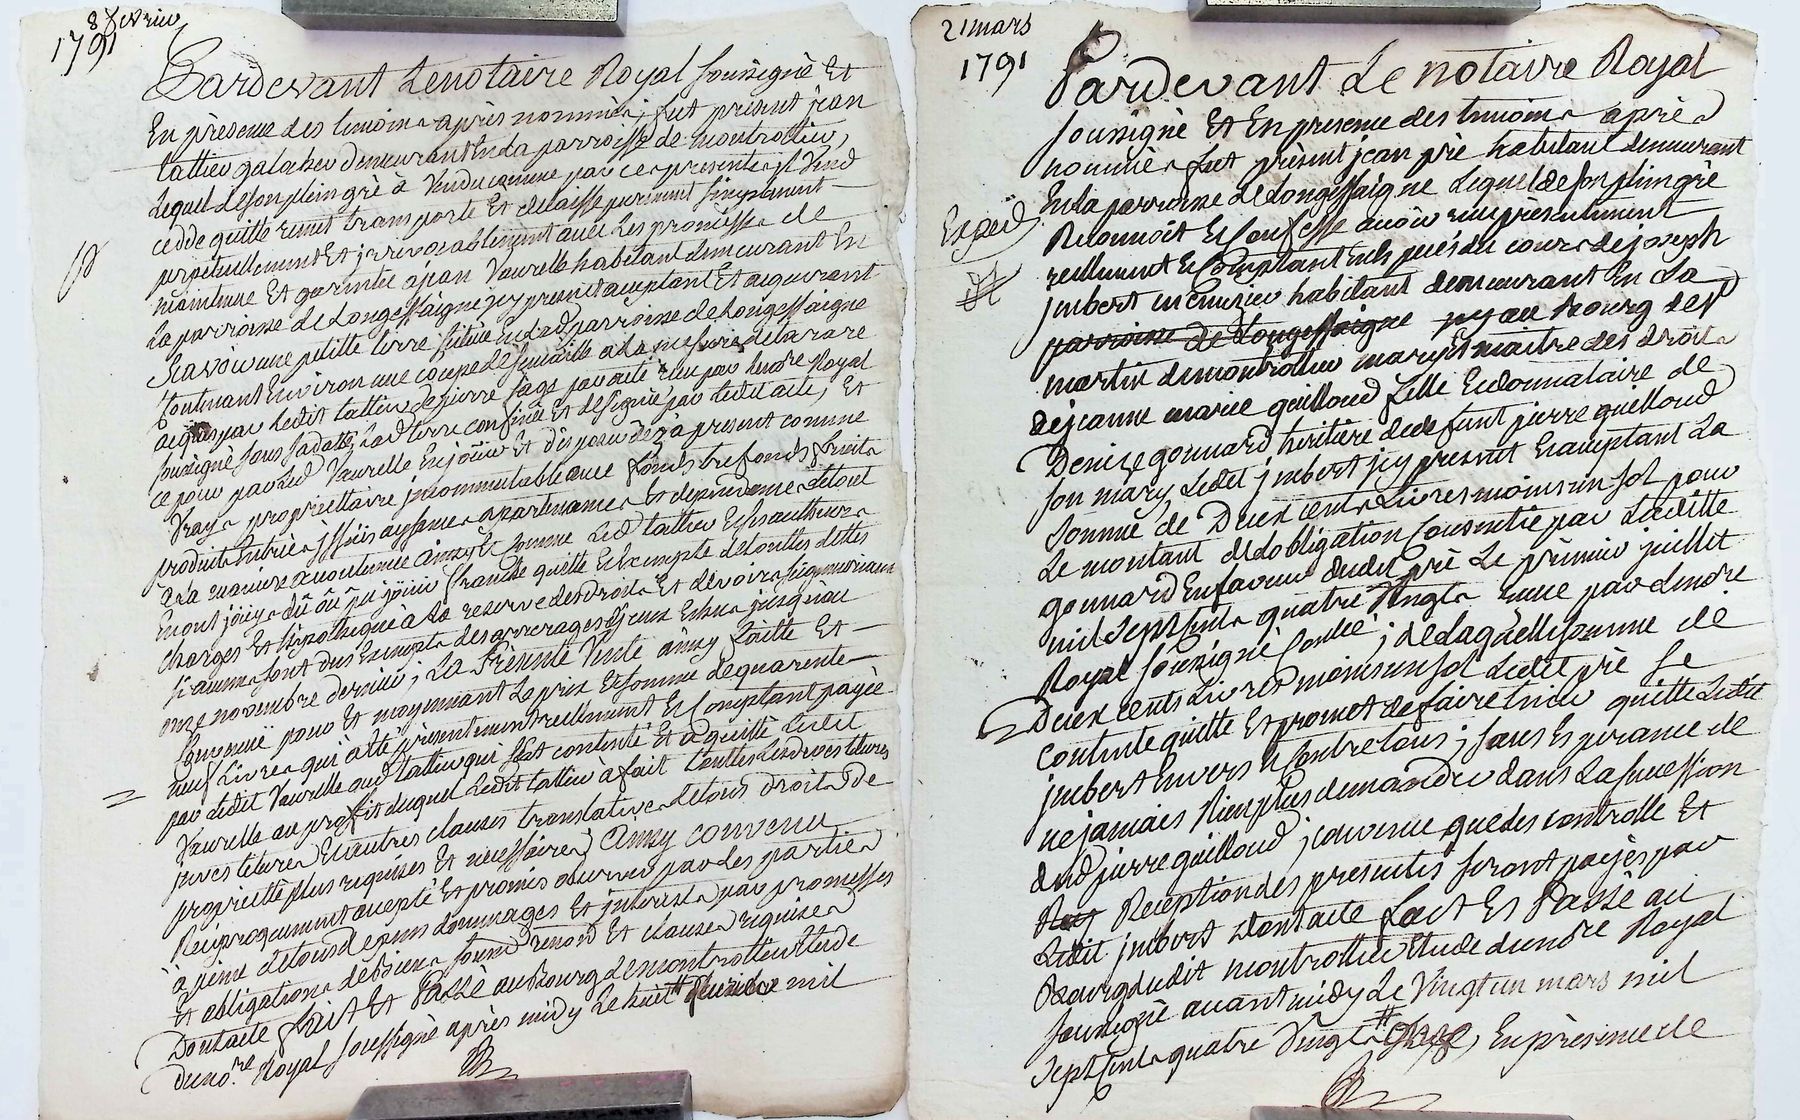 8 fevrier
1791
Pardevant Lenotaire Royal soussigné Et
En présence des temoins après nommés, fut présent jean
lattieu galocher demeurant En la parroisse de montrottier,
Lequel de son plein grè à Vendu comme par ces presentes il Vend
cedde quitte remet transporte Et delaisse purement simplement
perpetuellement Et jrrevocablement avec Les promesses de
maintenue Et garentie a jean Vaurelle habitant demeurant En
La parroisse de Longessaigne jcy present acceptant Et acquerant
Scavoir une petitte terre située En lad. parroisse de Longessaigne
Contenant Environ une coupe de semaille a la mesure de tarare
acquis par ledit lattieu de pierre sage par acte reçu par lenore Royal
soussigné sous sa datte, Lad. terre confinée Et designée par ledit acte, Et
ce pour par Led. Vaurelle En jouir Et disposer dez à present comme
Vray propriettaire jncommutable avec fonds trefonds fruits
produits Entrées jssües aysances apartenances Et dependances Letout
à La maniere accoutumée ainsy Et comme Led. lattieu Et ses autheurs
En ont jöuy dû ôu pu jöuir franche quitte Et Exempte de touttes dettes
charges Et hipotheques à La reserve des droits Et devoirs seigneuriaux
si aucuns sont dus Exempts des arrerages d'jceux Echus jusqu'au
onze novembre dernier; La Présente Vente ainsy faitte Et
Convenüe pour Et moyennant Le prix Et somme de quarente
neuf Livres qui à été présentement reellement Et Comptant payée
par ledit Vaurelle aud. lattieu qui s'est contenté Et à quitté Ledit
Vaurelle au profit duquel Ledit lattieu à fait touttes Les devestitures
jnvestitures Et autres clauses translatives de tous droits de
proprieté plus requises Et necessaires Ainsy convenu
Reciproquement accepté Et promis observer par les parties
à peine de tous depens dommages Et jnterests par promesses
Et obligations de biens soumd. renond. Et clauses requises
Dont acte fait Et Passé au Bourg de montrottier Etude
duno.re Royal soussigné après midy Le huit fevrier mil
21 mars
1791
Expéd.
Pardevant Le notaire Royal
soussigné Et En presence des temoins après
nommés fut présent jean prie habitant demeurant
En la parroisse de Longessaigne Lequel de son plein gré
Reconnoit Et Confesse avoir reçu présentement
reellement Et Comptant En Espeçes du cours de joseph
jmbert cuisinier habitant demeurant En La
parroisse de Longessaigne au Bourg de St
martin de montrottier mary Et maitre des droits
de jeanne marie guilloud fille Et donnataire de
Denize gonnard heritiere de defunt pierre guilloud
son mary, Ledit jmbert jcy present Et acceptant La
somme de Deux cents Livres moins un sol pour
Le montant de dobligation Consentie par Laditte
gonnard En faveur dudit Prie Le premier juillet
mil Sept Cent quatre Vingt reçue par Lenore
Royal soussigné Controllé; de Laquelle somme de
Deux cents Livres moins un sol Ledit prie se
contente quitte Et promet de faire tenir quitte Ledit
jmbert Envers Et Contre tous; sans Esperance de
ne jamais Rien plus demander dans La succession
dud. pierre guilloud; convenu que Les controlle Et
Reception des presentes seront payés par
Ledit jmbert dont acte fait Et Passé au
Bourg dudit montrottier Etude dunore Royal
soussigné avant midy Le Vingt un mars mil
Sept Cent quatre Vingt onze, En présence de